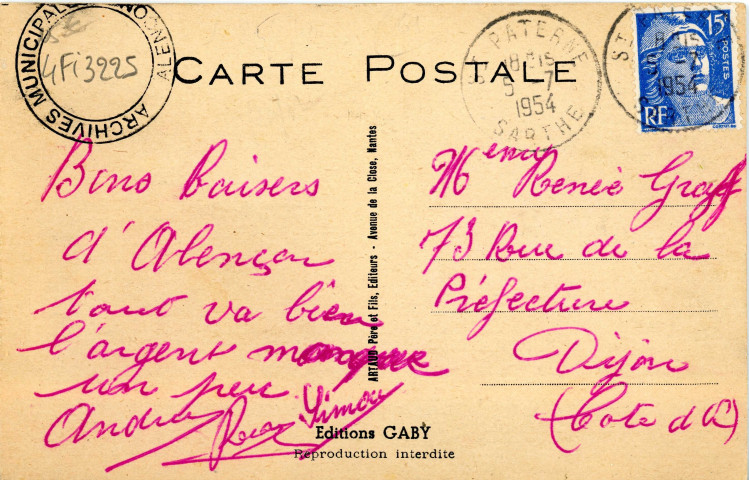 ARCHIVES MUNICIPALES ALENÇON
4Fi3225
CARTE POSTALE
ST PATERNE
18H15
5 7
1954
SARTHE
15F
POSTES
1954
RF
Bons baisers
d'Alençon
tout va bien
l'argent manque
un peu
André Simon
ARTAUD Père et Fils, Editeurs - Avenue de la Close, Nantes
Meur Renée Graff
73 Rue de la
Préfecture
Dijon
(Cote d'Or)
Editions GABY
Reproduction interdite